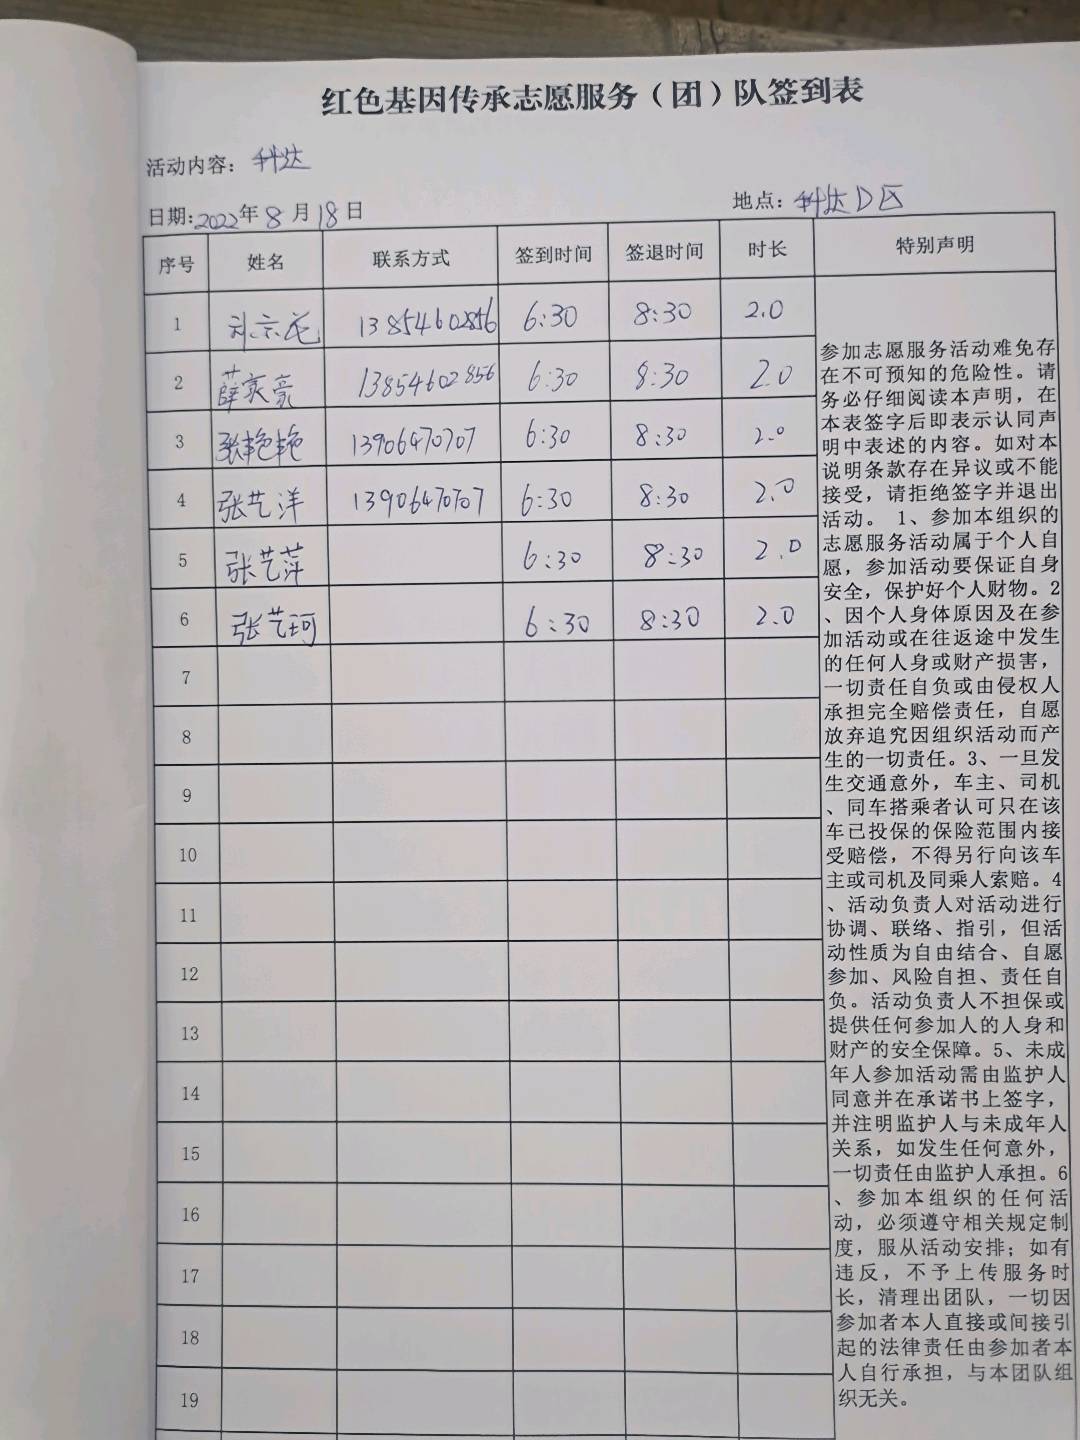 红色基因传承志愿服务（团）队签到表
活动内容：科达
日期：2022年8月18日
地点：科达D区
序号 姓名 联系方式 签到时间 签退时间 时长 特别声明
1 13854602856 6:30 8:30 2.0
2 薛奕豪 13854602856 6:30 8:30 2.0
3 张艳艳 13906470707 6:30 8:30 2.0
4 张艺洋 13906470707 6:30 8:30 2.0
5 张艺萍 6:30 8:30 2.0
6 张艺珂 6:30 8:30 2.0
7
8
9
10
11
12
13
14
15
16
17
18
19
参加志愿服务活动难免存
在不可预知的危险性。请
务必仔细阅读本声明，在
本表签字后即表示认同声
明中表述的内容。如对本
说明条款存在异议或不能
接受，请拒绝签字并退出
活动。 1、参加本组织的
志愿服务活动属于个人自
愿，参加活动要保证自身
安全，保护好个人财物。2
、因个人身体原因及在参
加活动或在往返途中发生
的任何人身或财产损害，
一切责任自负或由侵权人
承担完全赔偿责任，自愿
放弃追究因组织活动而产
生的一切责任。3、一旦发
生交通意外，车主、司机
、同车搭乘者认可只在该
车已投保的保险范围内接
受赔偿，不得另行向该车
主或司机及同乘人索赔。4
、活动负责人对活动进行
协调、联络、指引，但活
动性质为自由结合、自愿
参加、风险自担、责任自
负。活动负责人不担保或
提供任何参加人的人身和
财产的安全保障。5、未成
年人参加活动需由监护人
同意并在承诺书上签字，
并注明监护人与未成年人
关系，如发生任何意外，
一切责任由监护人承担。6
、参加本组织的任何活
动，必须遵守相关规定制
度，服从活动安排；如有
违反，不予上传服务时
长，清理出团队，一切因
参加者本人直接或间接引
起的法律责任由参加者本
人自行承担，与本团队组
织无关。